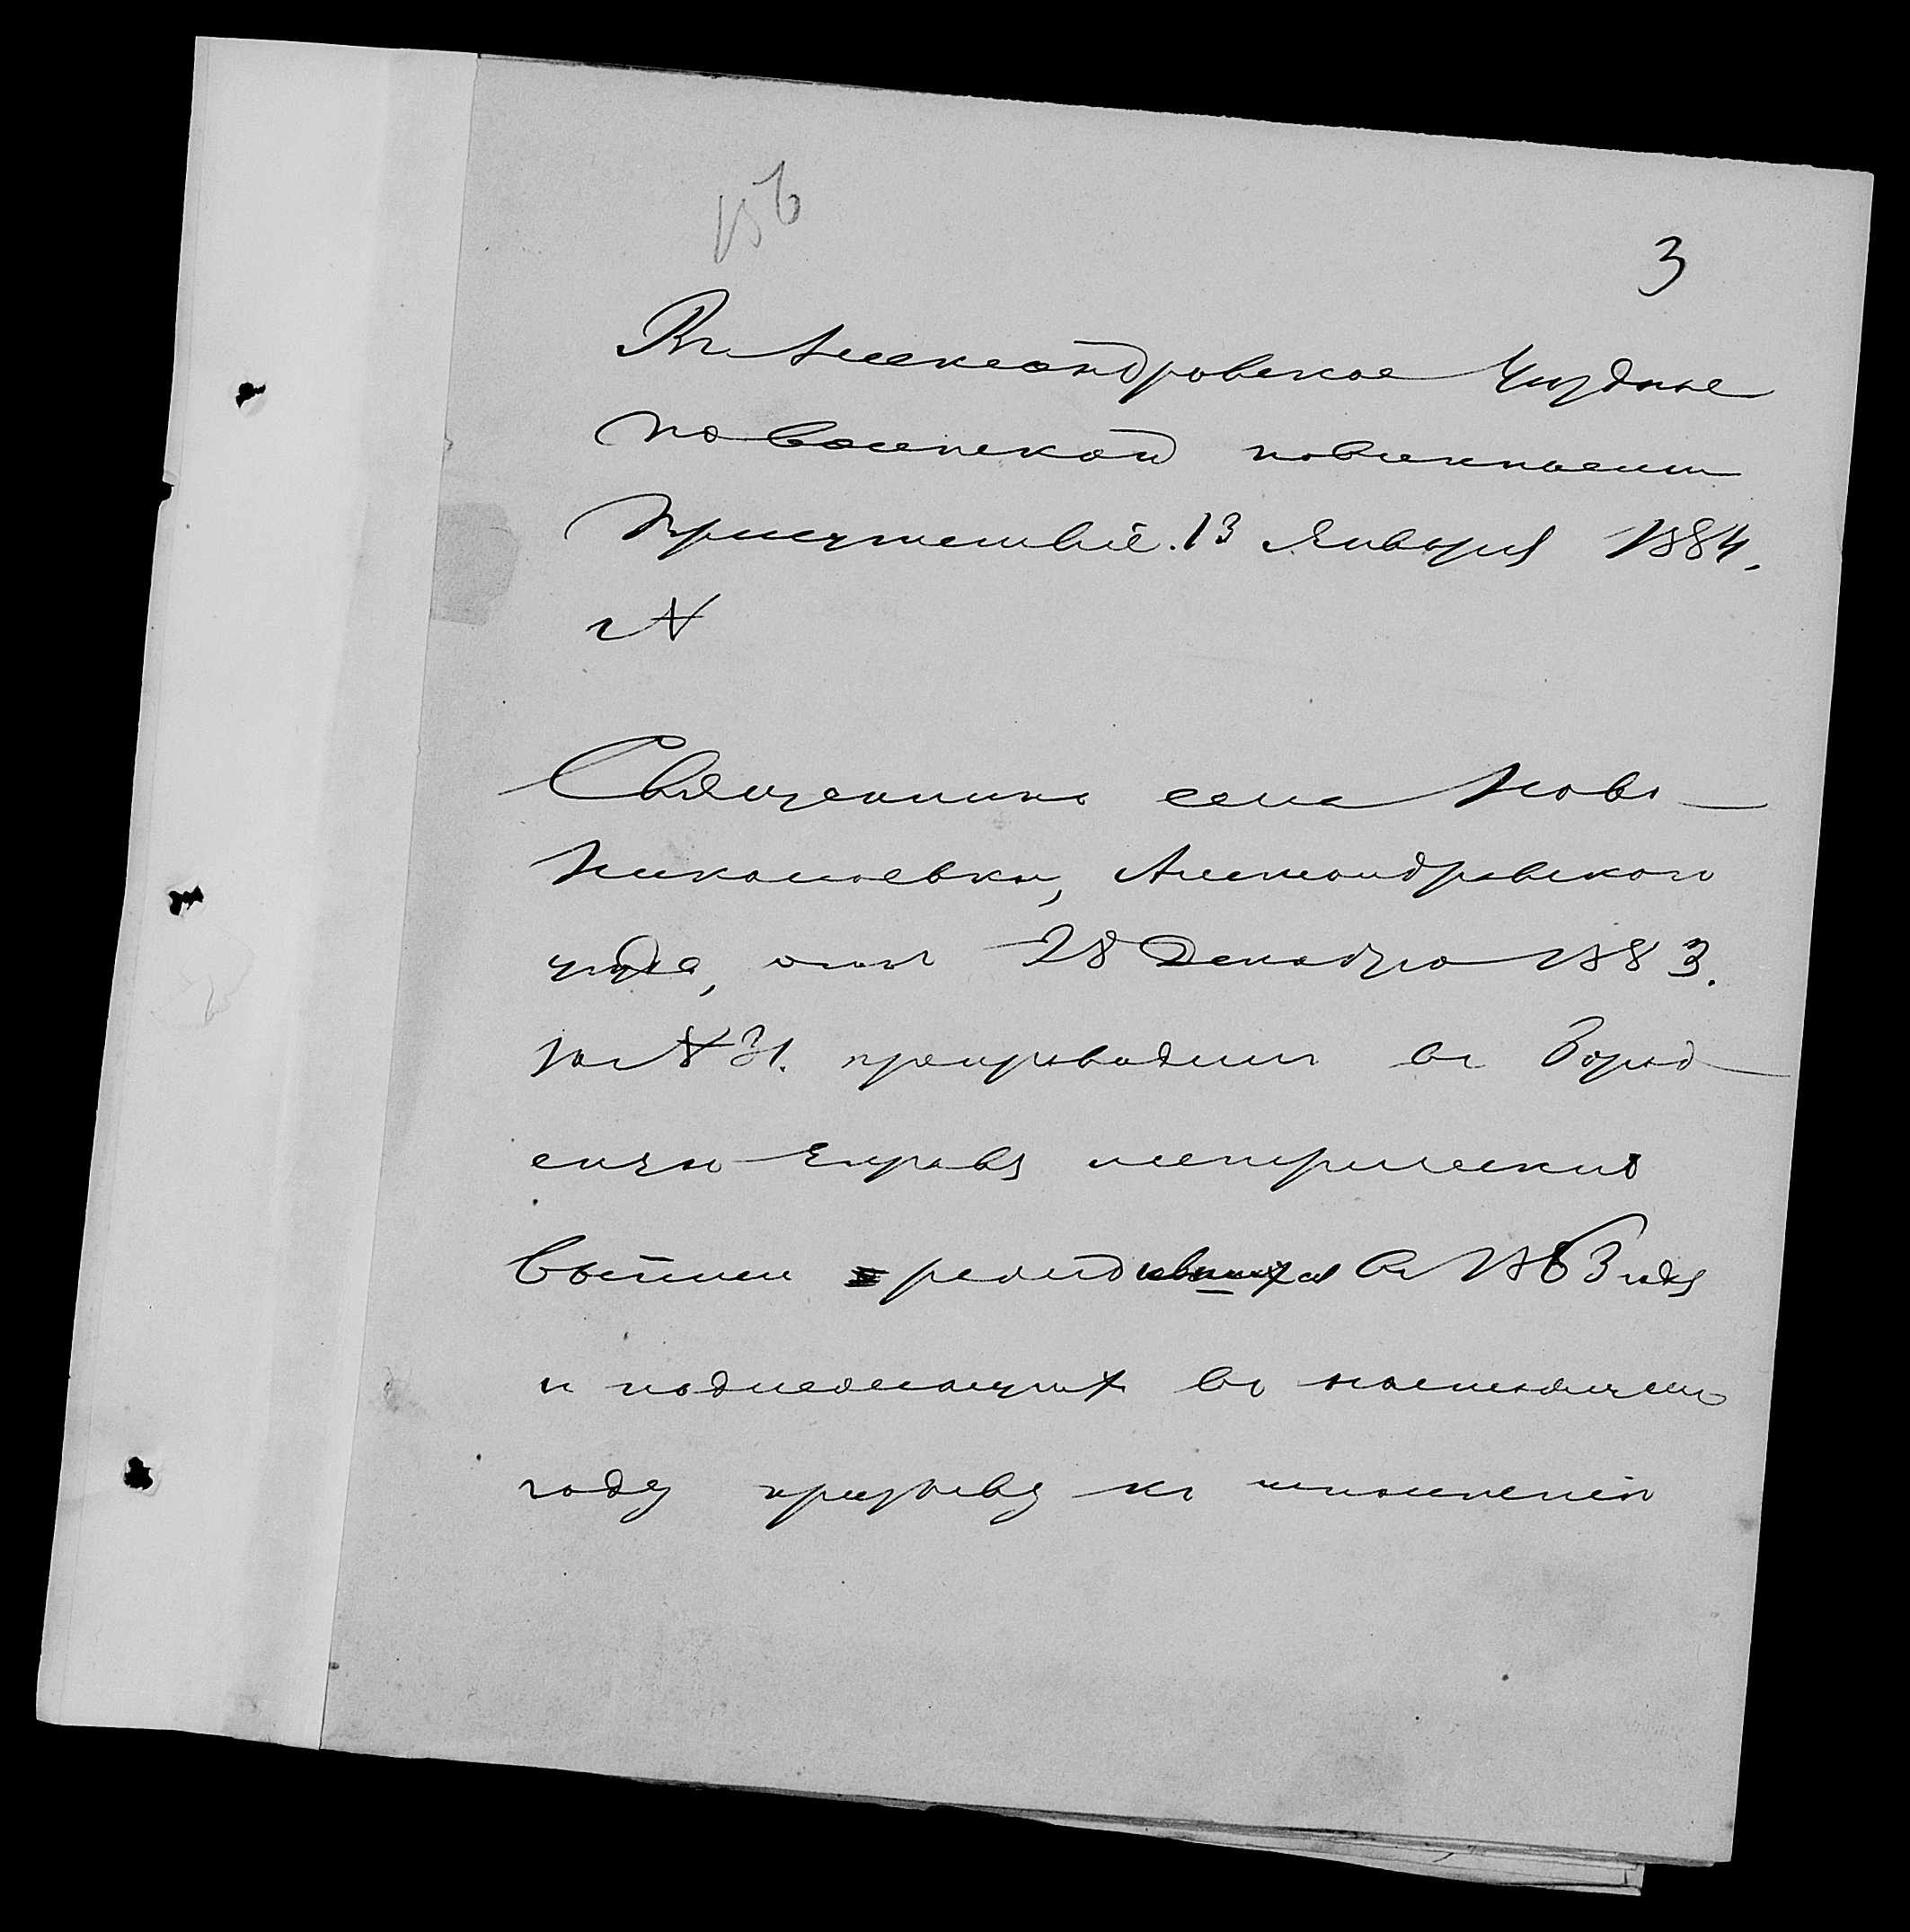 156
3
Въ Александровское Уѣздное
по воинской повинности
Присутствіе. 13 Января 1884.
г №
Священникъ села Ново-
Николаевки, Александровского
уѣзда, отъ 28 Декабря 1883.
за № 31. препроводилъ въ Город
скую Управу метрическія
выписи родившихся въ 1863 году
и подлежащихъ въ настоящемъ
году призыву къ исполненію